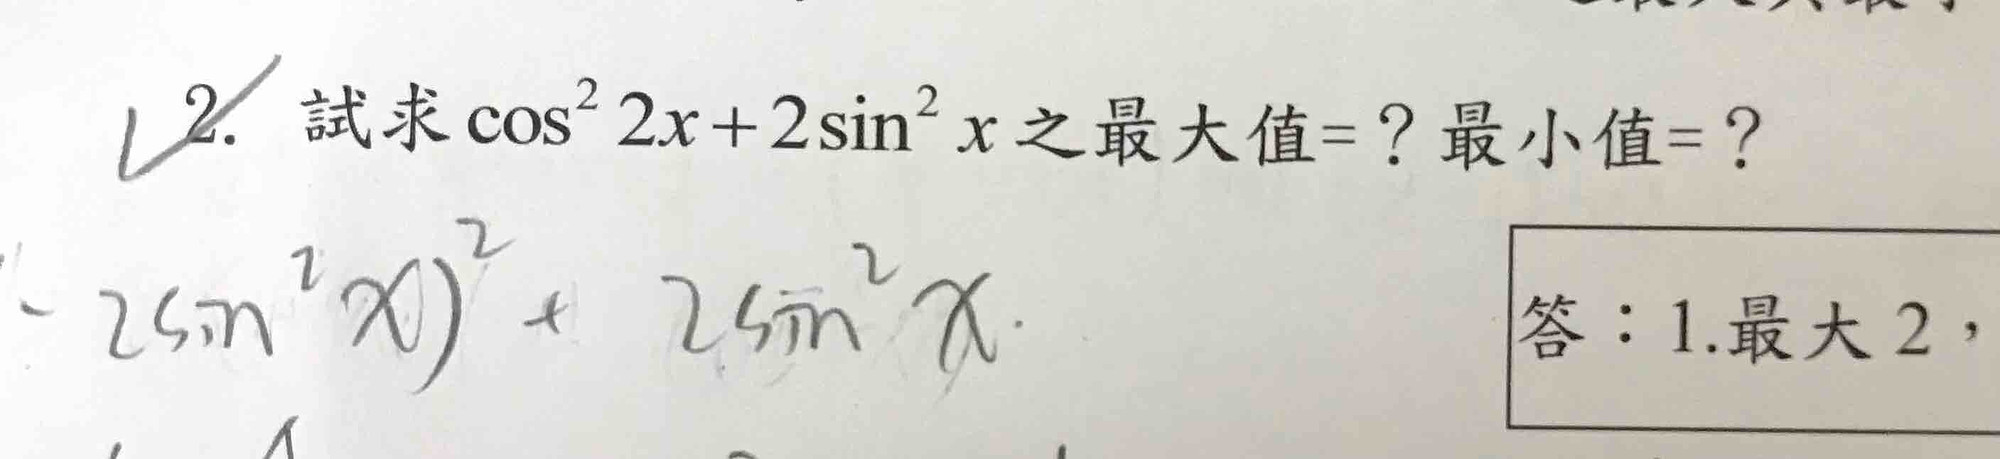 2. 試求 cos² 2x + 2sin² x 之最大值=？最小值=？
- 2sin² x)² + 2sin² x.
答：1.最大 2，